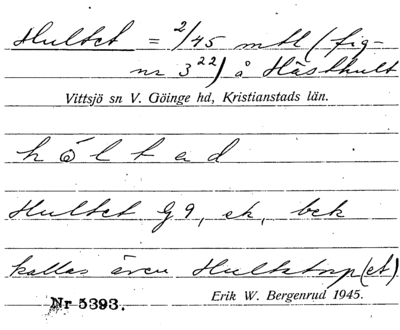 Hultet = 2/45 mtl (fig-
nr 3²²) å Hästhult
Vittsjö sn V. Göinge hd, Kristianstads län.
hóltad
Hultet G9, ek, bck
kallas även Hultstorp(et)
Nr 5393.
Erik W. Bergenrud 1945.